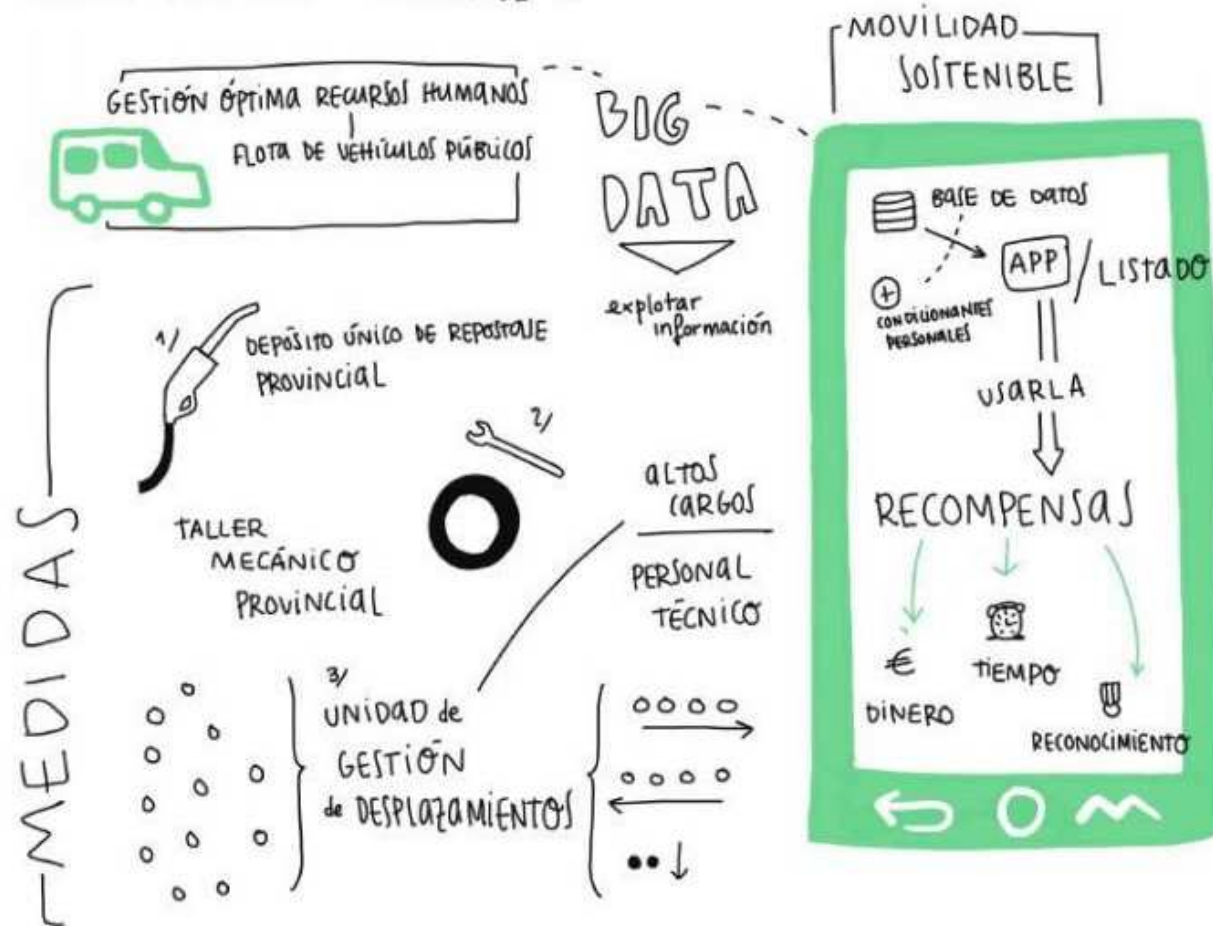 GESTIÓN ÓPTIMA RECURSOS HUMANOS
FLOTA DE VEHÍCULOS PÚBLICOS
BIG
DATA
explotar
información
MOVILIDAD
SOSTENIBLE
BASE DE DATOS
APP / LISTADO
+
CONDICIONANTES
PERSONALES
USARLA
RECOMPENSAS
€
DINERO
TIEMPO
RECONOCIMIENTO
MEDIDAS
1/
DEPÓSITO ÚNICO DE REPOSTAJE
PROVINCIAL
2/
TALLER
MECÁNICO
PROVINCIAL
ALTOS
CARGOS
PERSONAL
TÉCNICO
3/
UNIDAD de
GESTIÓN
de DESPLAZAMIENTOS